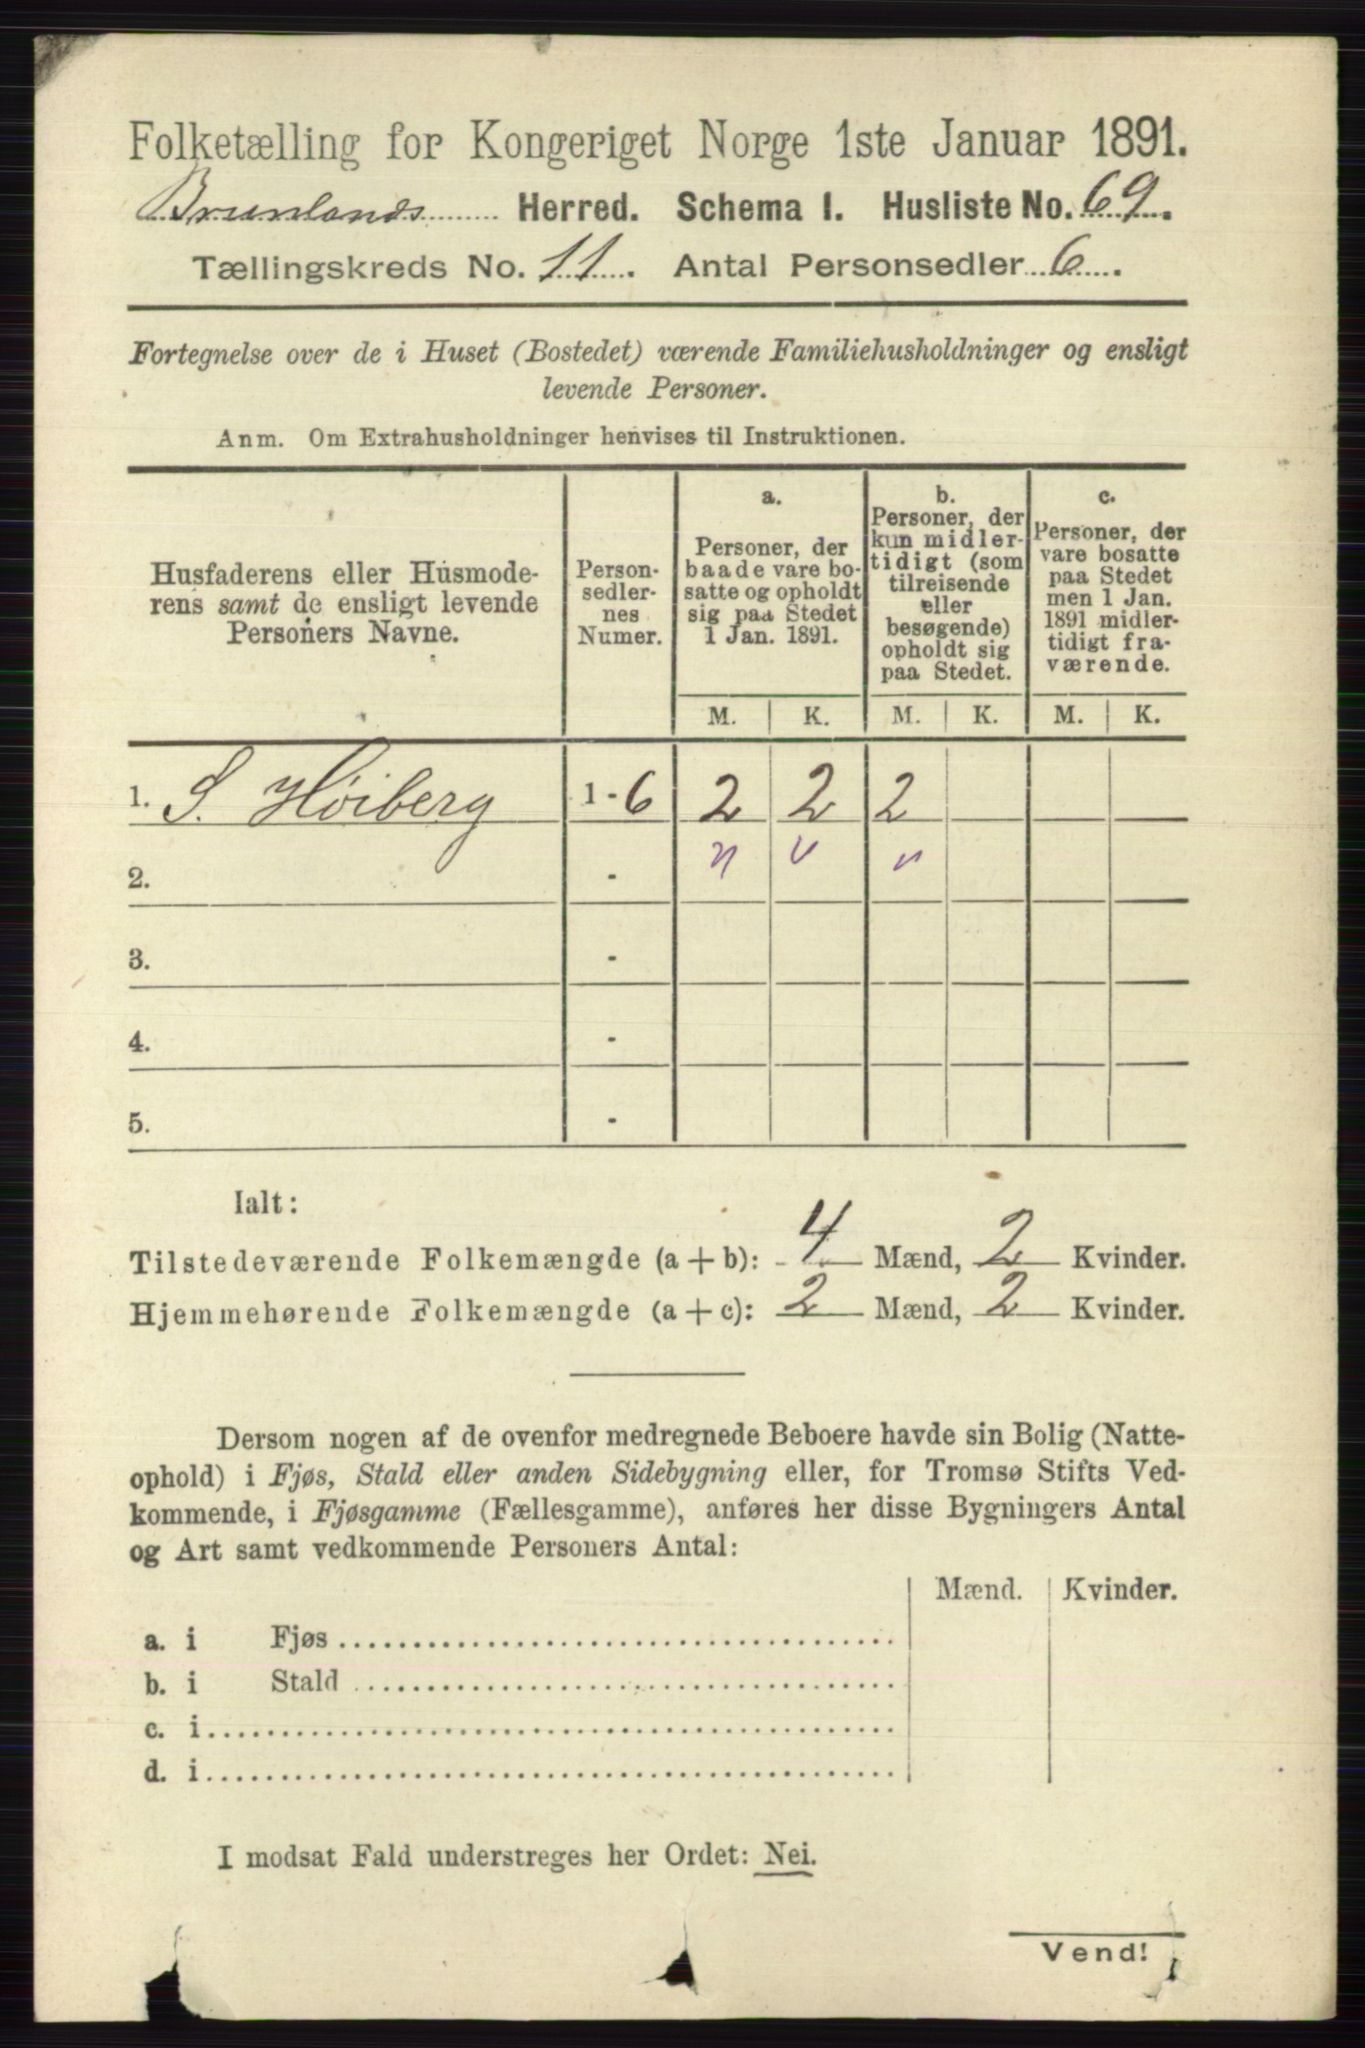 Folketælling for Kongeriget Norge 1ste Januar 1891.
Brunlands Herred. Schema I. Husliste No. 69.
Tællingskreds No. 11. Antal Personsedler 6.
Fortegnelse over de i Huset (Bostedet) værende Familiehusholdninger og ensligt
levende Personer.
Anm. Om Extrahusholdninger henvises til Instruktionen.
Husfaderens eller Husmode-
rens samt de ensligt levende
Personers Navne.
Person-
sedler-
nes
Numer.
a.
Personer, der
baade vare bo-
satte og opholdt
sig paa Stedet
1 Jan. 1891.
b.
Personer, der
kun midler-
tidigt (som
tilreisende
eller
besøgende)
opholdt sig
paa Stedet.
c.
Personer, der
vare bosatte
paa Stedet
men 1 Jan.
1891 midler-
tidigt fra-
værende.
M. K. M. K. M. K.
1. S. Höiberg 1 - 6 2 2 2
2. -
3. -
4. -
5. -
Ialt:
Tilstedeværende Folkemængde (a + b): 4 Mænd, 2 Kvinder.
Hjemmehørende Folkemængde (a + c): 2 Mænd, 2 Kvinder.
Dersom nogen af de ovenfor medregnede Beboere havde sin Bolig (Natte-
ophold) i Fjøs, Stald eller anden Sidebygning eller, for Tromsø Stifts Ved-
kommende, i Fjøsgamme (Fællesgamme), anføres her disse Bygningers Antal
og Art samt vedkommende Personers Antal:
Mænd. Kvinder.
a. i Fjøs
b. i Stald
c. i
d. i
I modsat Fald understreges her Ordet: Nei.
Vend!